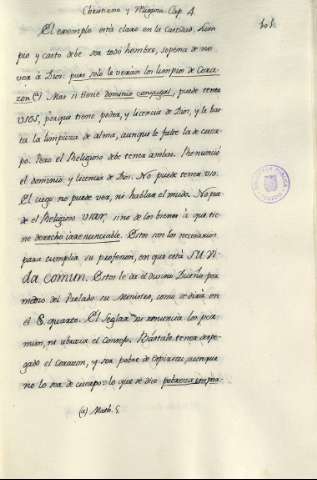 Christiano y Virgina. Cap. 4.
101.
El exemplo está claro en la castidad. Lim-
pio y casto debe ser todo hombre, sopena de no
ver à Dios: pues solo le verán los limpios de Cora-
zon (a) Mas si tiene dominio conyugal, puede tener
usos, porque tiene poder, y licencia de Dios, y le bas-
ta la limpieza de alma, aunque le falte la de cuer-
po. Pero el Religioso debe tener ambas. Renunció
el dominio, y licencia de Dios. No puede tener uso.
El ciego no puede ver, ni hablar el mudo. No pue-
de el Religioso usar, sino de los bienes à que tie-
ne derecho irrenunciable. Estos son los necesarios
para cumplir su profesion, en que está su vi-
da comun. Estos le da el divino Dueño por
medio del Prelado su Ministro, como se dirá en
el §. quarto. El Seglar no renuncia los per-
misos, ni abraza el Consejo. Bástale tener despe-
gado el corazon, y ser pobre de espiritu, aunque
no lo sea de cuerpo: lo que se dice pobreza
(a) Math. 5.